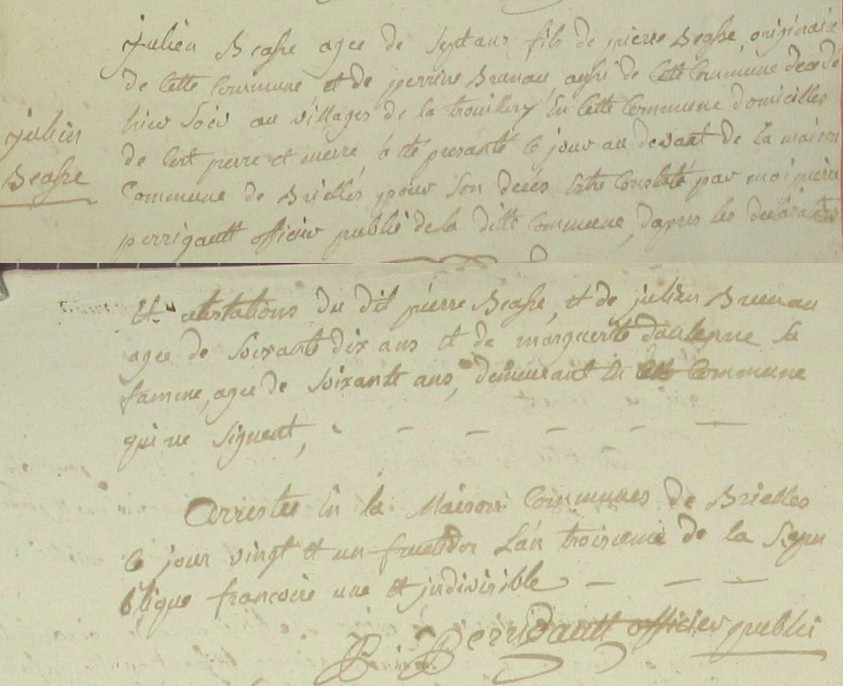 julien Beasse agee de sept ans fils de pierre Beasse, originaire
de Cette Commune et de perrine Bruneau aussi de Cette Commune decedé
hier Soëv au villages de la trouillery En Cette Commune domicilles
julien
de Cert perre et merre, a été presanté Ce jour au devant de la maison
Beasse
Commune de Brielles pour Son decés Estre Constaté par moi pierre
perrigault officier publié de la ditte Commune, dapres les declarations
Et attestations du dit pierre Beasse, et de julien Bruneau
agee de Soixante dix ans et de marguerite daulenne Sa
famme, agee de Soixante ans, demeurant En Commune
qui ne Signent,
Arrestee En la Maison Communes de Brielles
Ce jour vingt et un fructidor L'an troisieme de la Repu
blique francoise une et indivisible
P. Perrigault officier publié